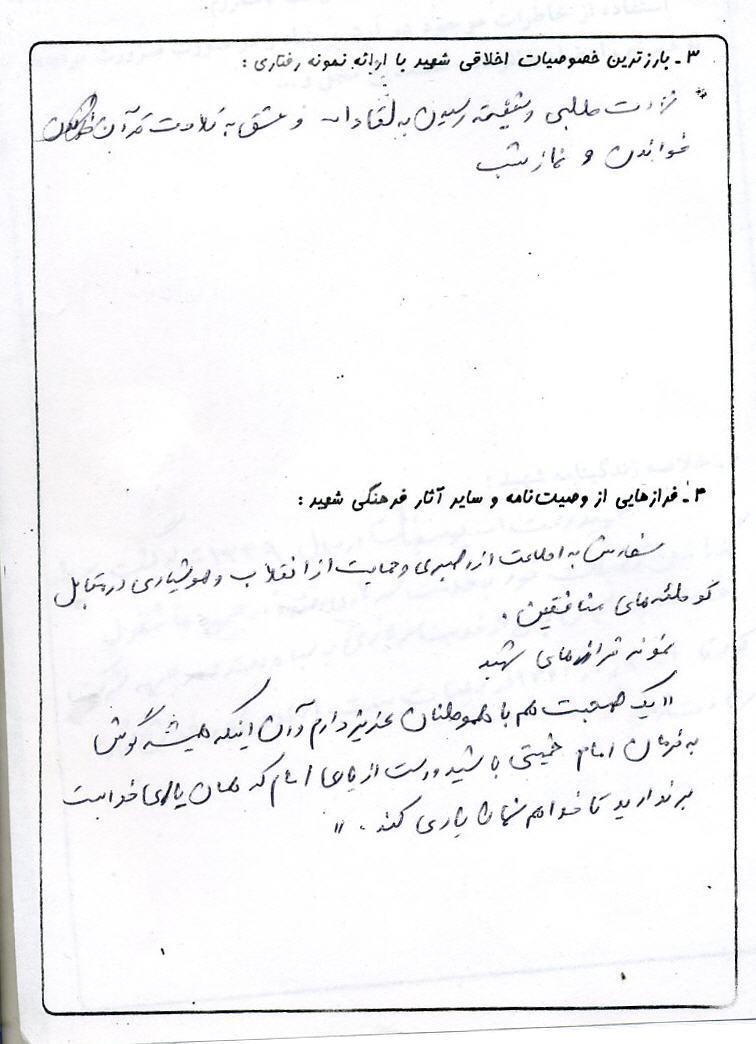 ۳ـ بارزترین خصوصیات اخلاقی شهید با ارائه نمونه رفتاری :
* شهادت طلبی و شیفته رسیدن به لقاءاله و عشق به تلاوت قرآن
خواندن و نماز شب
۴ـ فرازهایی از وصیت‌نامه و سایر آثار فرهنگی شهید :
سفارش به اطاعت از رهبری و حمایت از انقلاب و هوشیاری در مقابل
توطئه‌های منافقین .
نمونه فرازهای شهید
" یک صحبت هم با هموطنان عزیز دارم و آن اینکه همیشه گوش
به فرمان امام خمینی باشید و دست از یاری امام که همان یاری خداست
برندارید تا خدا هم شما را یاری کند . "